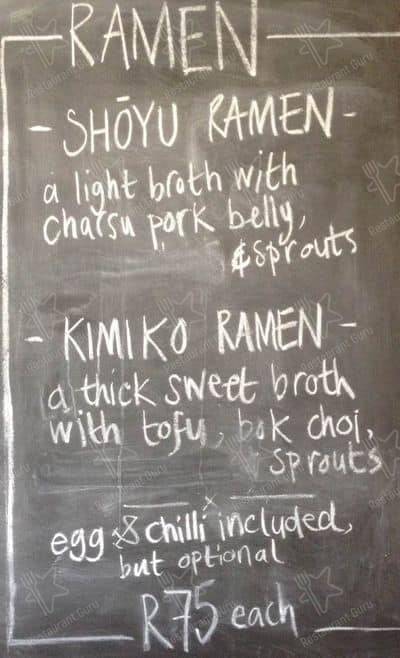 RAMEN
- SHŌYU RAMEN -
a light broth with
charsu pork belly,
& sprouts
- KIMIKO RAMEN -
a thick sweet broth
with tofu, bok choi,
sprouts
egg & chilli included,
but optional
R75 each